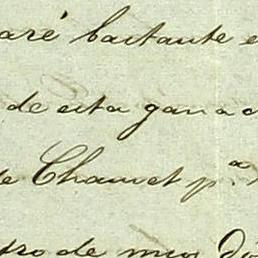 aré bastante e
de esta gana a
e Chauvet p.ª
tro de muy